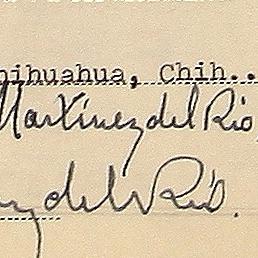 hihuahua, Chih..
Martinez del Rio,
ez del Rio.